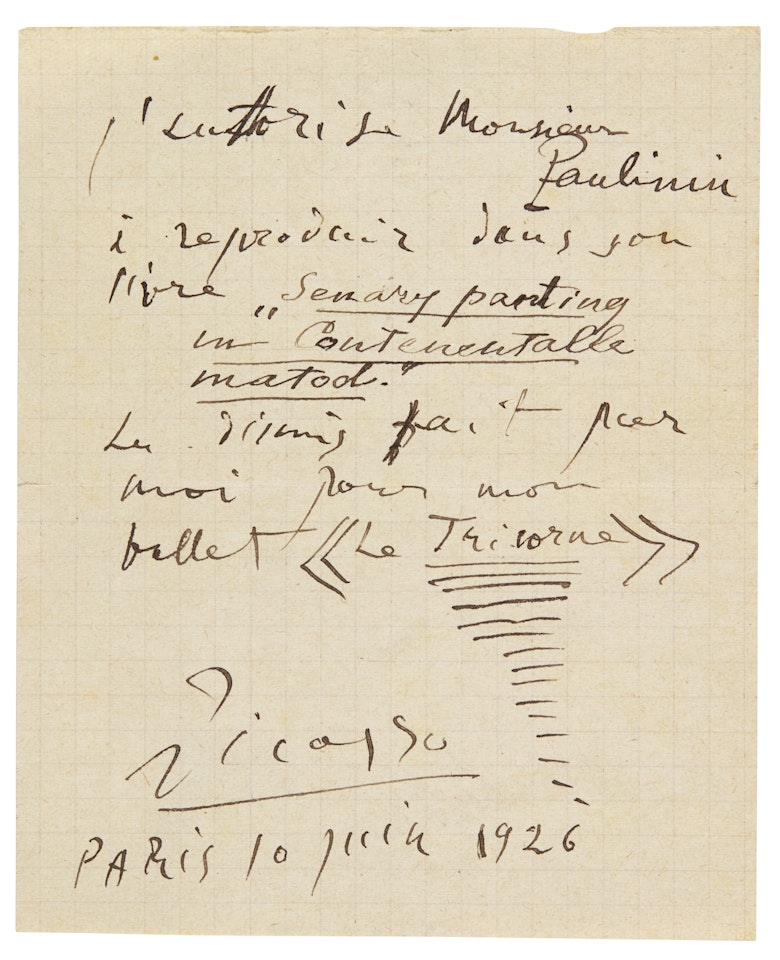 j'autorise Monsieur
Paulinin
à reproduir dans son
livre "Senary panting
in Contenentalle
matod."
La disinis fait par
moi pour mon
ballet «Le Tricorne»
Picasso
PARIS 10 juin 1926